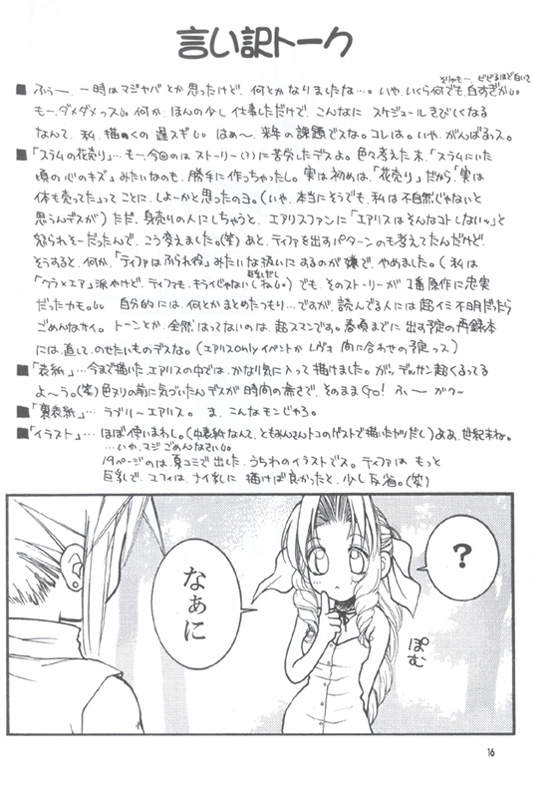 言い訳トーク
■ ふぅー、一時はマジヤバとか思ったけど、何とかなりましたな…。いや、いくら何でも白すぎかい。
もー、ダメダメっス。何か、ほんの少し仕事しただけで、こんなに スケジュールきびしくなる
なんて、私、描くの遅スギい。はぁ〜、来年の課題でスな。コレは。いや、がんばるっス。
■「スラムの花売り」…も一、今回のは ストーリー(?)に苦労したデスよ。色々考えた末、「スラムにいた
頃の心のキズ」みたいなのも、勝手に作っちゃったし。実は初めは、「花売り」だから「実は
体も売ってた」ってことに、しよーかと思ったのヨ。(いや、本当にそうでも、私は不自然じゃないと
思うんデスが) ただ、身売りの人にしちゃうと、エアリスファンに「エアリスはそんなコトしないッ」と
怒られそーだったんで、こう考えました。(笑) あと、ティファを出すパターンのも考えてたんだけど、
そうすると、何か、「ティファはふられ役」みたいな扱いにするのが嫌で、やめました。(私は
「クラ×エア」派やけど、ティファも、キライじゃない(ねし)) でも、そのストーリーが 1番原作に忠実
だったカモ。 自分的には、何とかまとめたつもり…ですが、読んでる人には超イミ不明だったら
ごめんなサイ。トーンとか、全然はってないのは、超スマンです。春頃までに 出す予定の再録本
には、直して、のせたいものデスな。(エアリスonlyイベントか レヴォ 間に合わせの予定っス)
■「表紙」…今まで描いたエアリスの中では、かなり気に入って描けました。が。デッサン超くるってる
よ〜う。(笑) 色ヌリの前に気づいたんデスが時間の斎さで、そのままGo! ふー
■「裏表紙」… ラブリーエアリス。 ま、こんなモンじゃろ。
■「イラスト」… ほぼ使いまわし。(中表紙なんて、ともみんさんトコのゲストで描いたヤツだし) ああ、世紀末ね。
…いや、マジごめんなさい。
19ページのは、夏コミで出した、うちわのイラストでス。ティファは もっと
巨乳で、ユフィは、ナイ乳に 描けば良かったと、少し反省。(笑)
?
なぁに
ぽむ
16